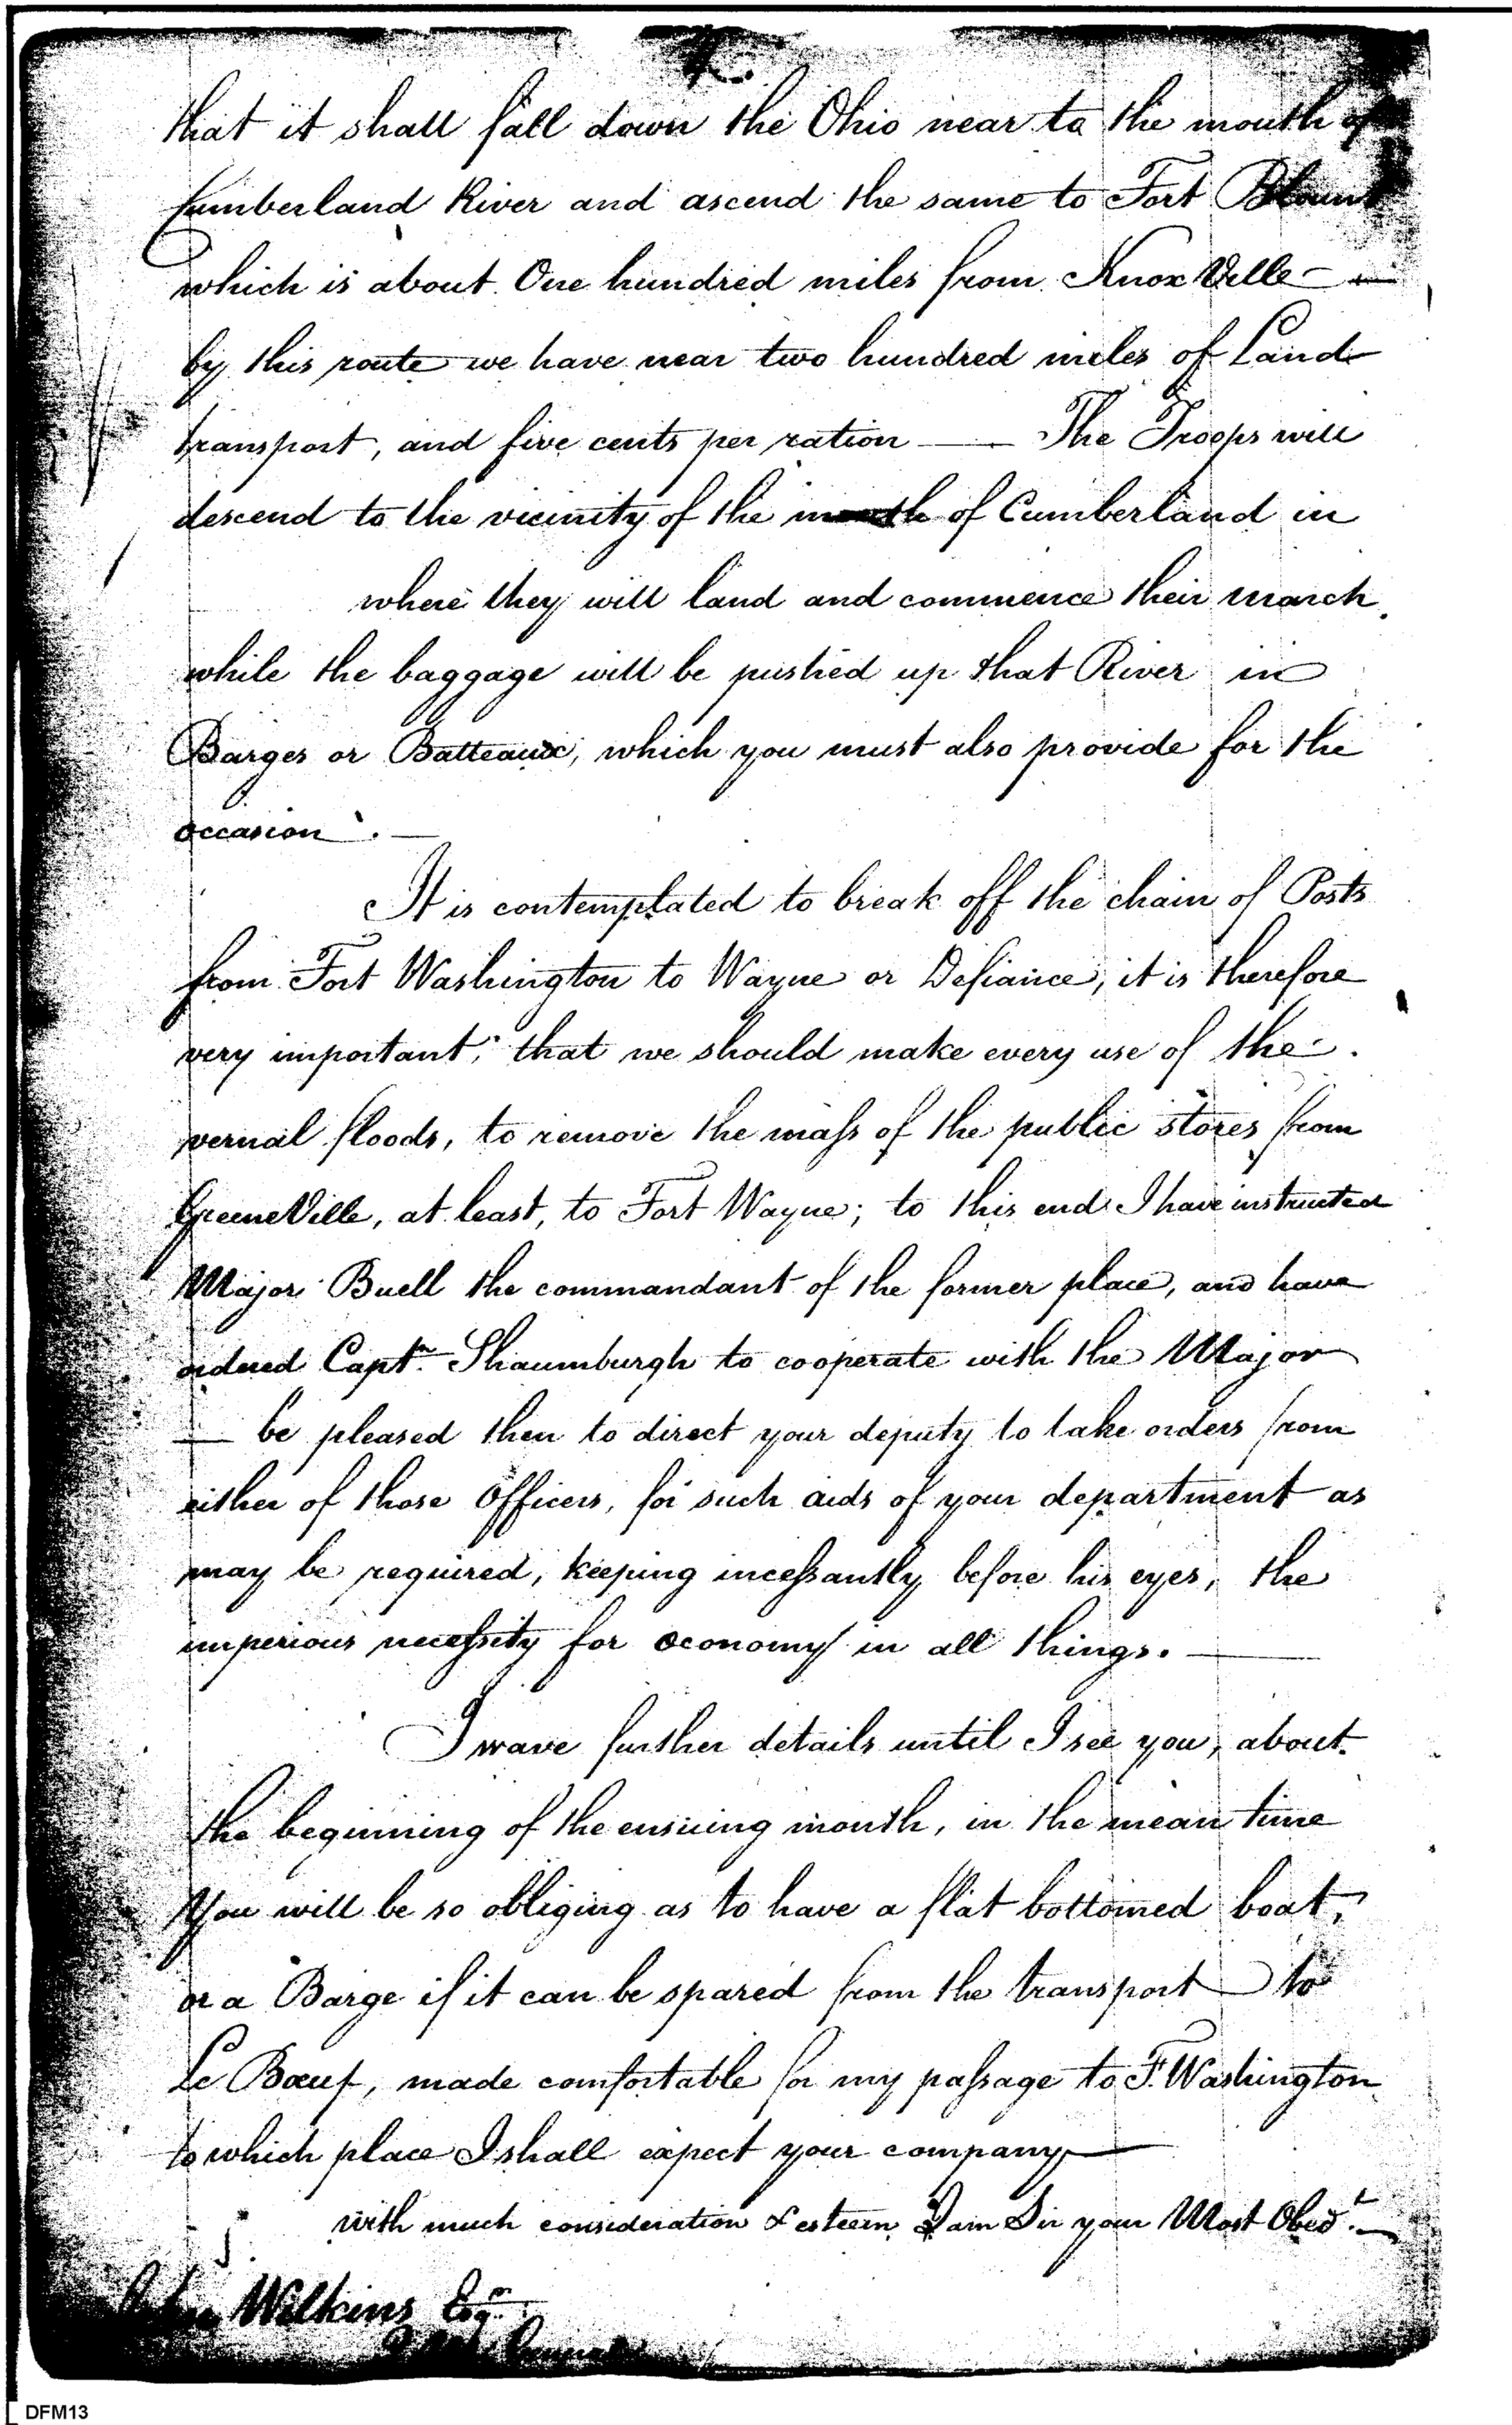 that it shall fall down the Ohio near to the mouth of
Cumberland River and ascend the same to Fort Blount
which is about One hundred miles from KnoxVille —
by this route we have near two hundred miles of Land
transport, and five cents per ration —— The Troops will
descend to the vicinity of the mouth of Cumberland in
where they will land and commence their march,
while the baggage will be pushed up that River in
Barges or Batteaux, which you must also provide for the
occasion. —
It is contemplated to break off the chain of Posts
from Fort Washington to Wayne or Defiance, it is therefore
very important, that we should make every use of the
vernal floods, to remove the mass of the public stores from
GreeneVille, at least, to Fort Wayne; to this end I have instructed
Major Buell the commandant of the former place, and have
ordered Captn. Shaumburgh to cooperate with the Major
— be pleased then to direct your deputy to take orders from
either of those Officers, for such aids of your department as
may be required, keeping incessantly before his eyes, the
imperious necessity for œconomy in all things. ——
I wave further details until I see you, about
the beginning of the ensuing month, in the mean time
You will be so obliging as to have a flat bottomed boat,
or a Barge if it can be spared from the transport to
Le Bœuf, made comfortable for my passage to F. Washington
to which place I shall expect your company ——
with much consideration & esteem I am Sir your Most Obedt. —
John Wilkins Esqr.
DFM13